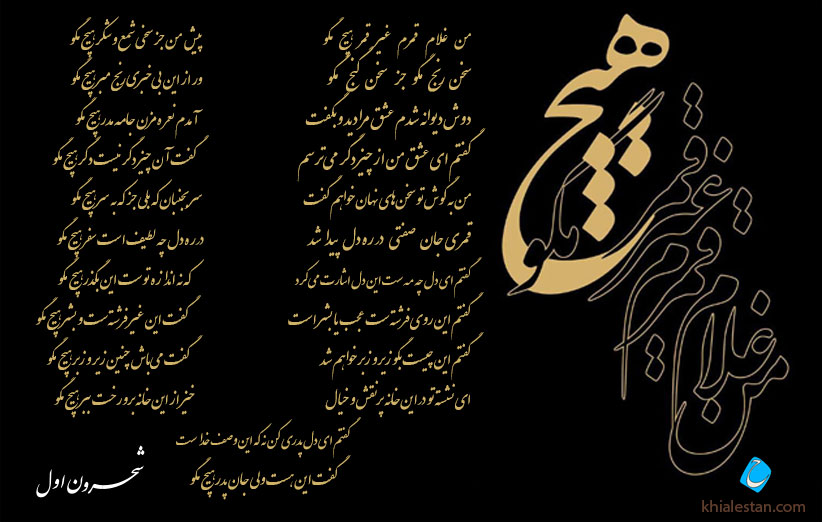 من غلام قمرم غیر قمر هیچ مگو
من غلام قمرم غیر قمر هیچ مگو
پیش من جز سخن شمع و شکر هیچ مگو
سخن رنج مگو جز سخن گنج مگو
ور از این بی خبری رنج مبر هیچ مگو
دوش دیوانه شدم عشق مرا دید و بگفت
آمدم نعره مزن جامه مدر هیچ مگو
گفتم ای عشق من از چیز دگر می‌ترسم
گفت آن چیز دگر نیست دگر هیچ مگو
من به گوش تو سخن‌های نهان خواهم گفت
سر بجنبان که بلی جز که به سر هیچ مگو
قمری جان صفتی در ره دل پیدا شد
در ره دل چه لطیف است سفر هیچ مگو
گفتم ای دل چه مه ست این دل اشارت می‌کرد
که نه اندازه توست این بگذر هیچ مگو
گفتم این روی فرشته ست عجب یا بشر است
گفت این غیر فرشته ست و بشر هیچ مگو
گفتم این چیست بگو زیر و زبر خواهم شد
گفت می‌باش چنین زیر و زبر هیچ مگو
ای نشسته تو در این خانه پر نقش و خیال
خیز از این خانه برو رخت ببر هیچ مگو
گفتم ای دل پدری کن نه که این وصف خدا ست
گفت این هست ولی جان پدر هیچ مگو
اول
khialestan.com